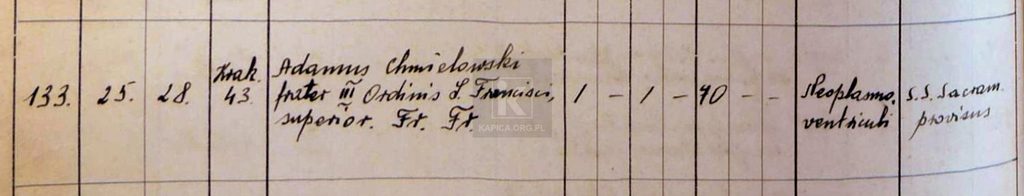 133. 25. 28. Krak. 43. Adamus Chmielowski
frater III Ordinis S. Francisci,
superior. Fr. Fr.
1 - 1 - 40 - -
Neoplasma
ventriculi
S.S. Sacram.
provisus
KAPICA.ORG.PL